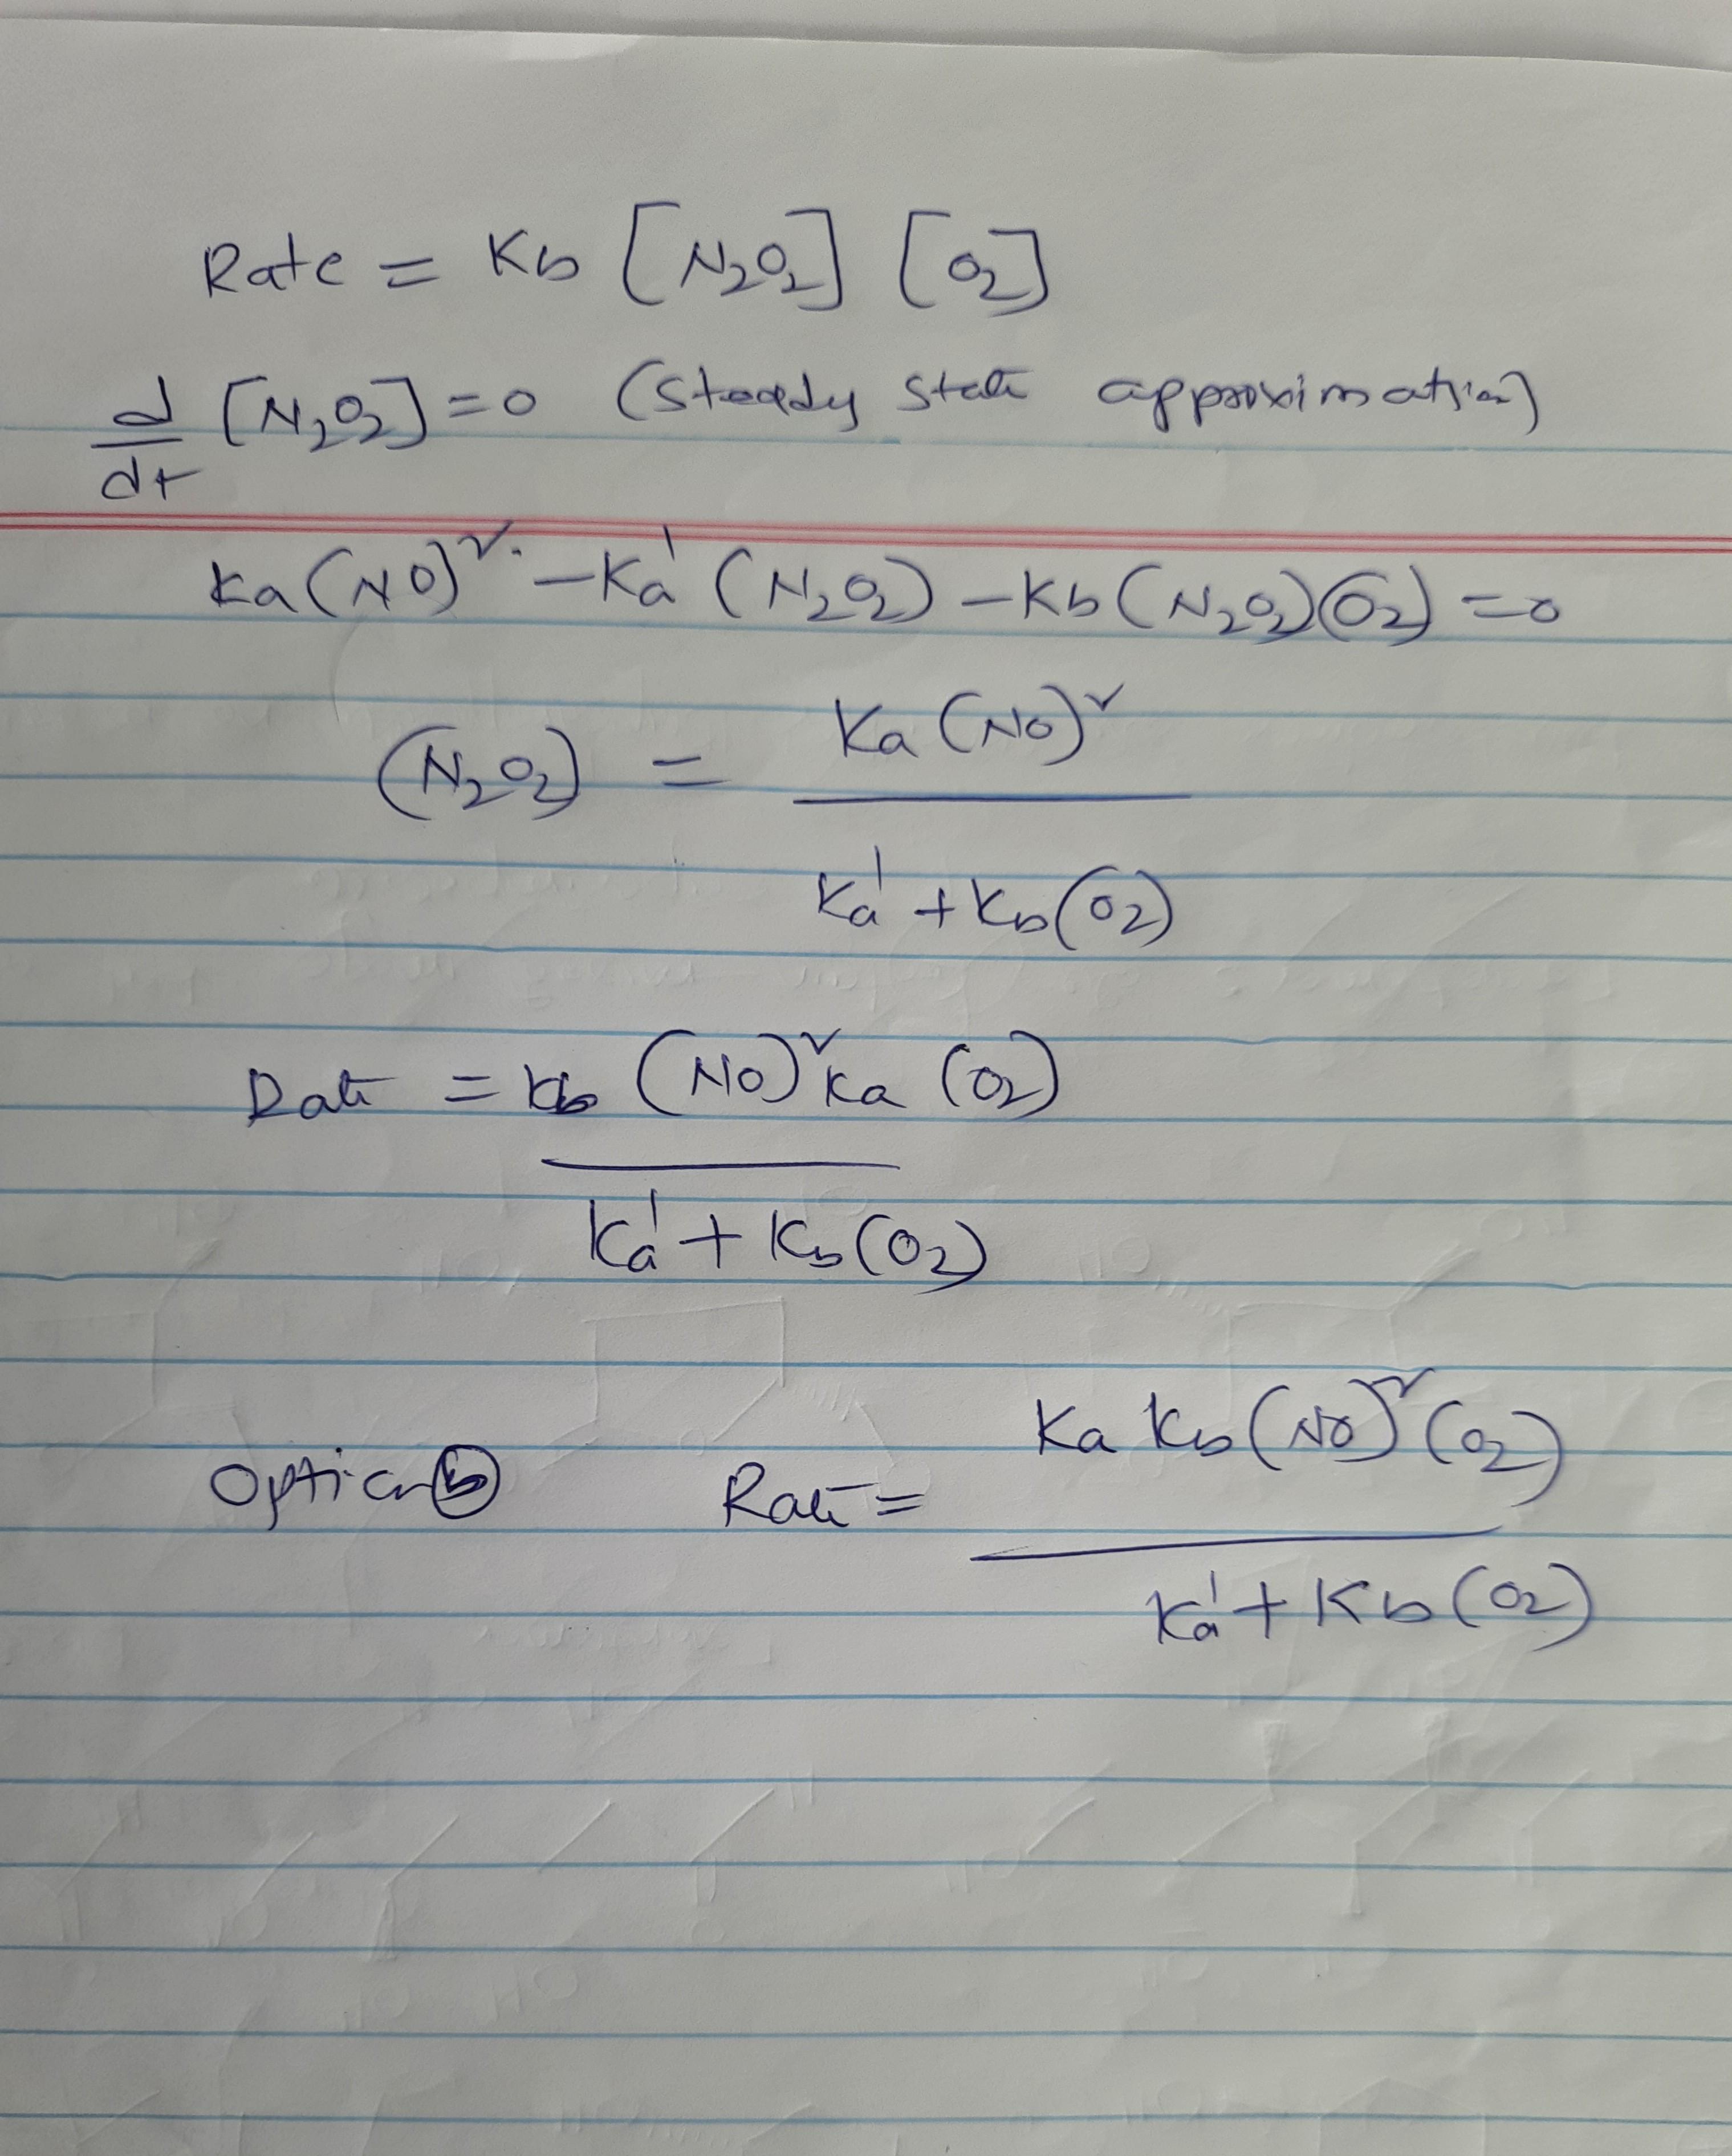 Rate = Kb [N₂O₂] [O₂]
d/dt [N₂O₂] = 0 (Steady State approximation)
Ka(NO)² - Ka'(N₂O₂) - Kb(N₂O₂)(O₂) = 0
(N₂O₂) = Ka(NO)²
Ka' + Kb(O₂)
Rate = Kb (NO)² Ka (O₂)
Ka' + Kb(O₂)
Ka Kb(NO)²(O₂)
Option (b) Rate =
Ka' + Kb(O₂)